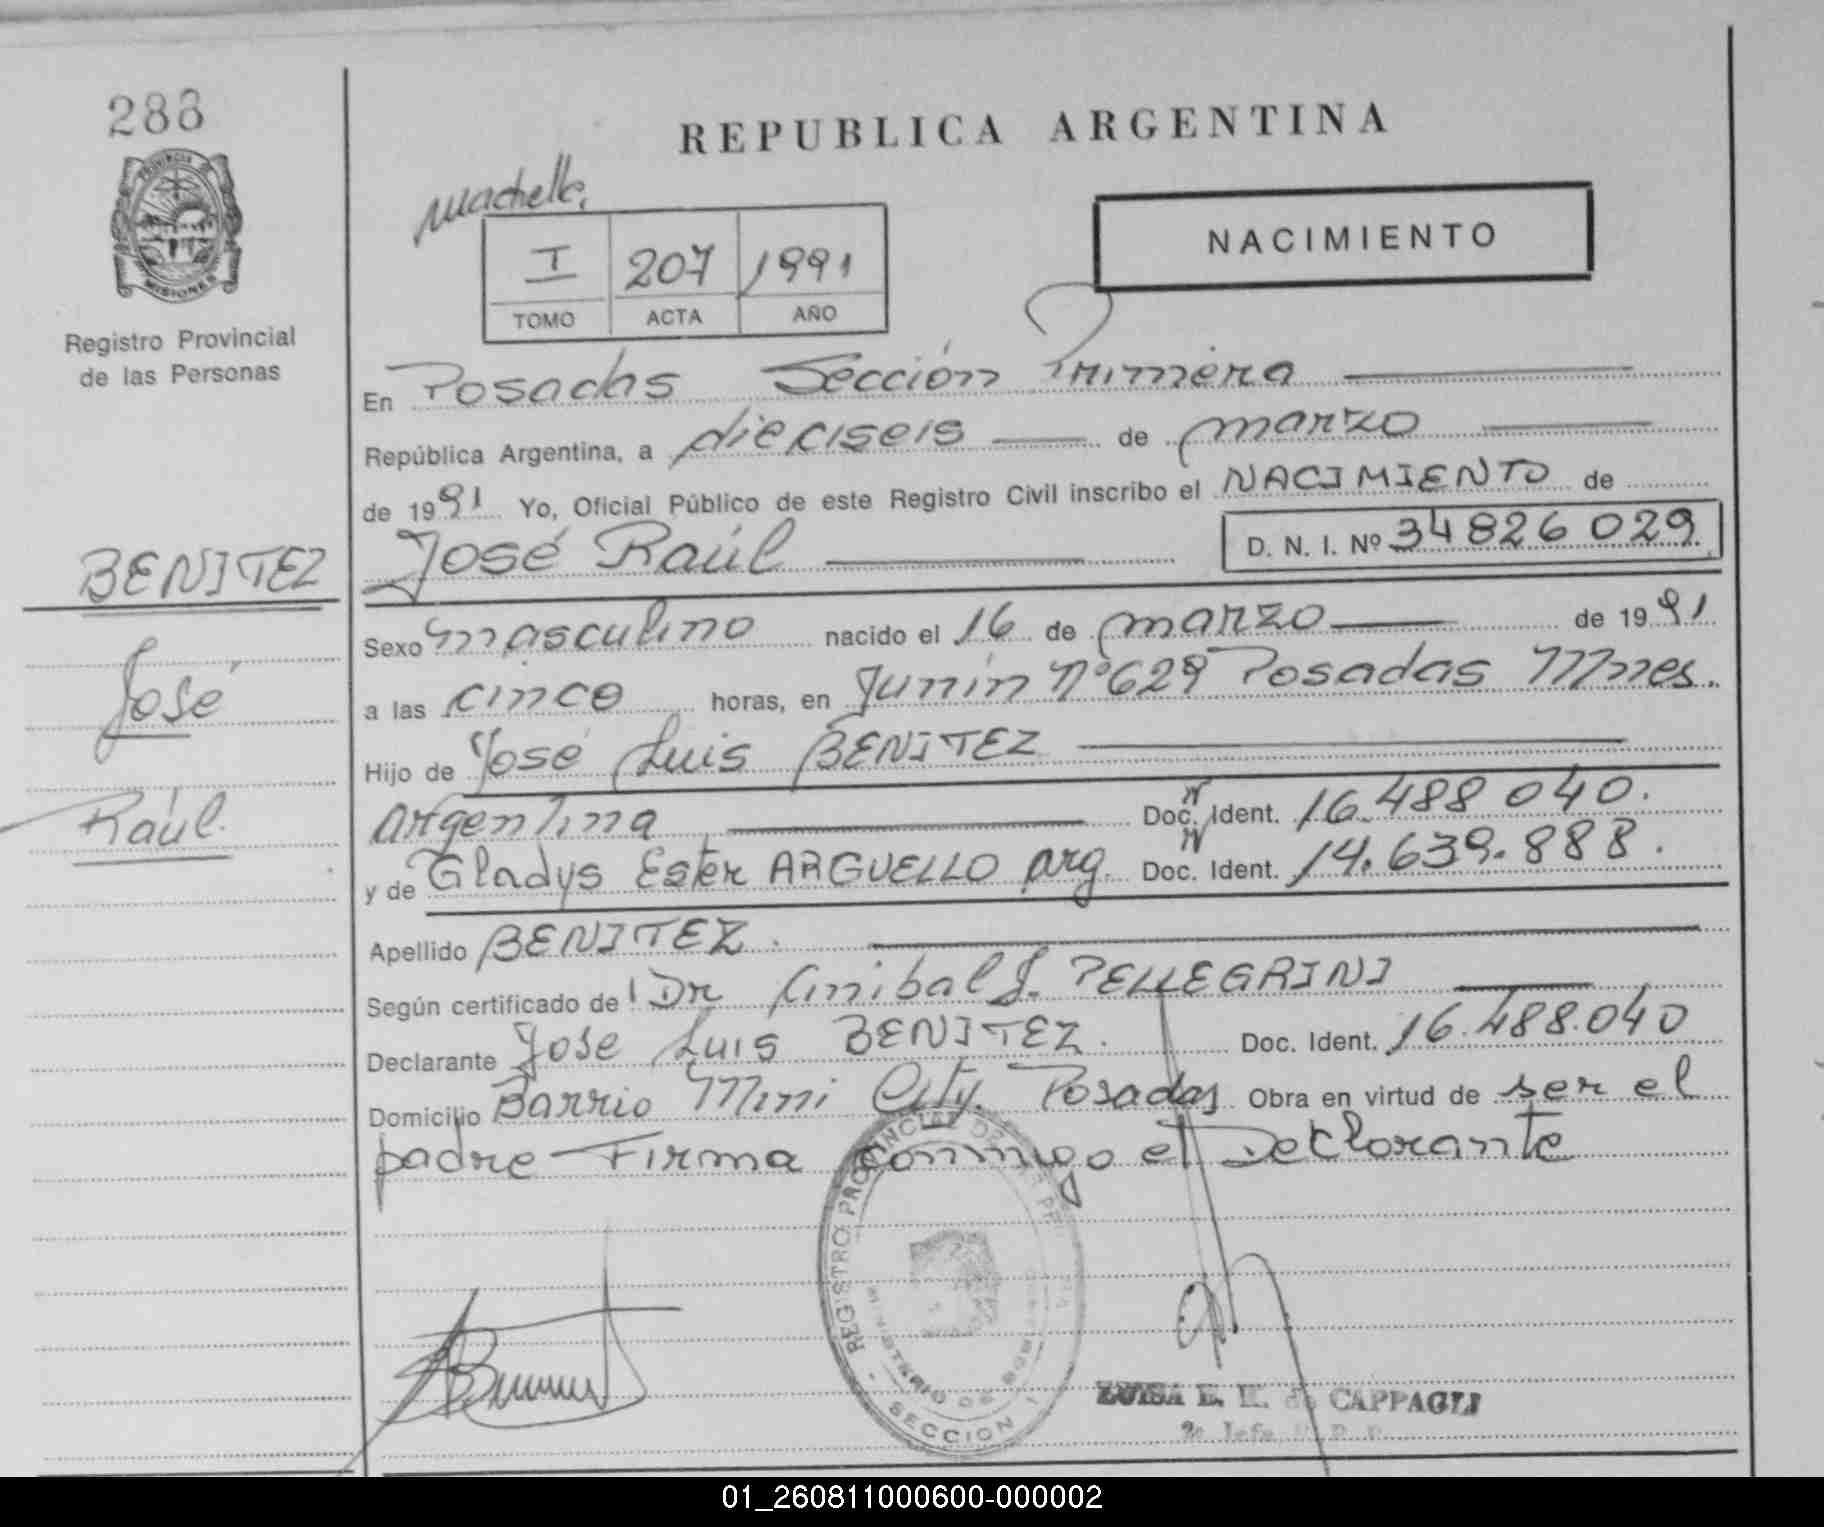 288
REPUBLICA ARGENTINA
PROVINCIA
MISIONES
Registro Provincial
de las Personas
I 207 1991
TOMO ACTA AÑO
NACIMIENTO
En Posadas Sección Primera
República Argentina, a dieciseis de marzo
de 1991 Yo, Oficial Público de este Registro Civil inscribo el NACIMIENTO de
José Raúl D. N. I. Nº 34826029
BENITEZ
José
Raúl.
Sexo masculino nacido el 16 de marzo de 1991
a las cinco horas, en Junín Nº 629 Posadas Mnes.
Hijo de José Luis BENITEZ
Argentina Doc. Ident. 16.488 040.
y de Gladys Ester ARGUELLO Arg. Doc. Ident. 14.639.888.
Apellido BENITEZ.
Según certificado de Dr Anibal J. PELLEGRINI
Declarante Jose Luis BENITEZ. Doc. Ident. 16.488.040
Domicilio Barrio Mini City. Posadas Obra en virtud de ser el
padre - Firma conmigo el Declarante
REGISTRO PROVINCIAL DE
MINISTERIO DE
SECCION 1
LUISA E. H. de CAPPAGLI
2º Jefe
01_260811000600-000002